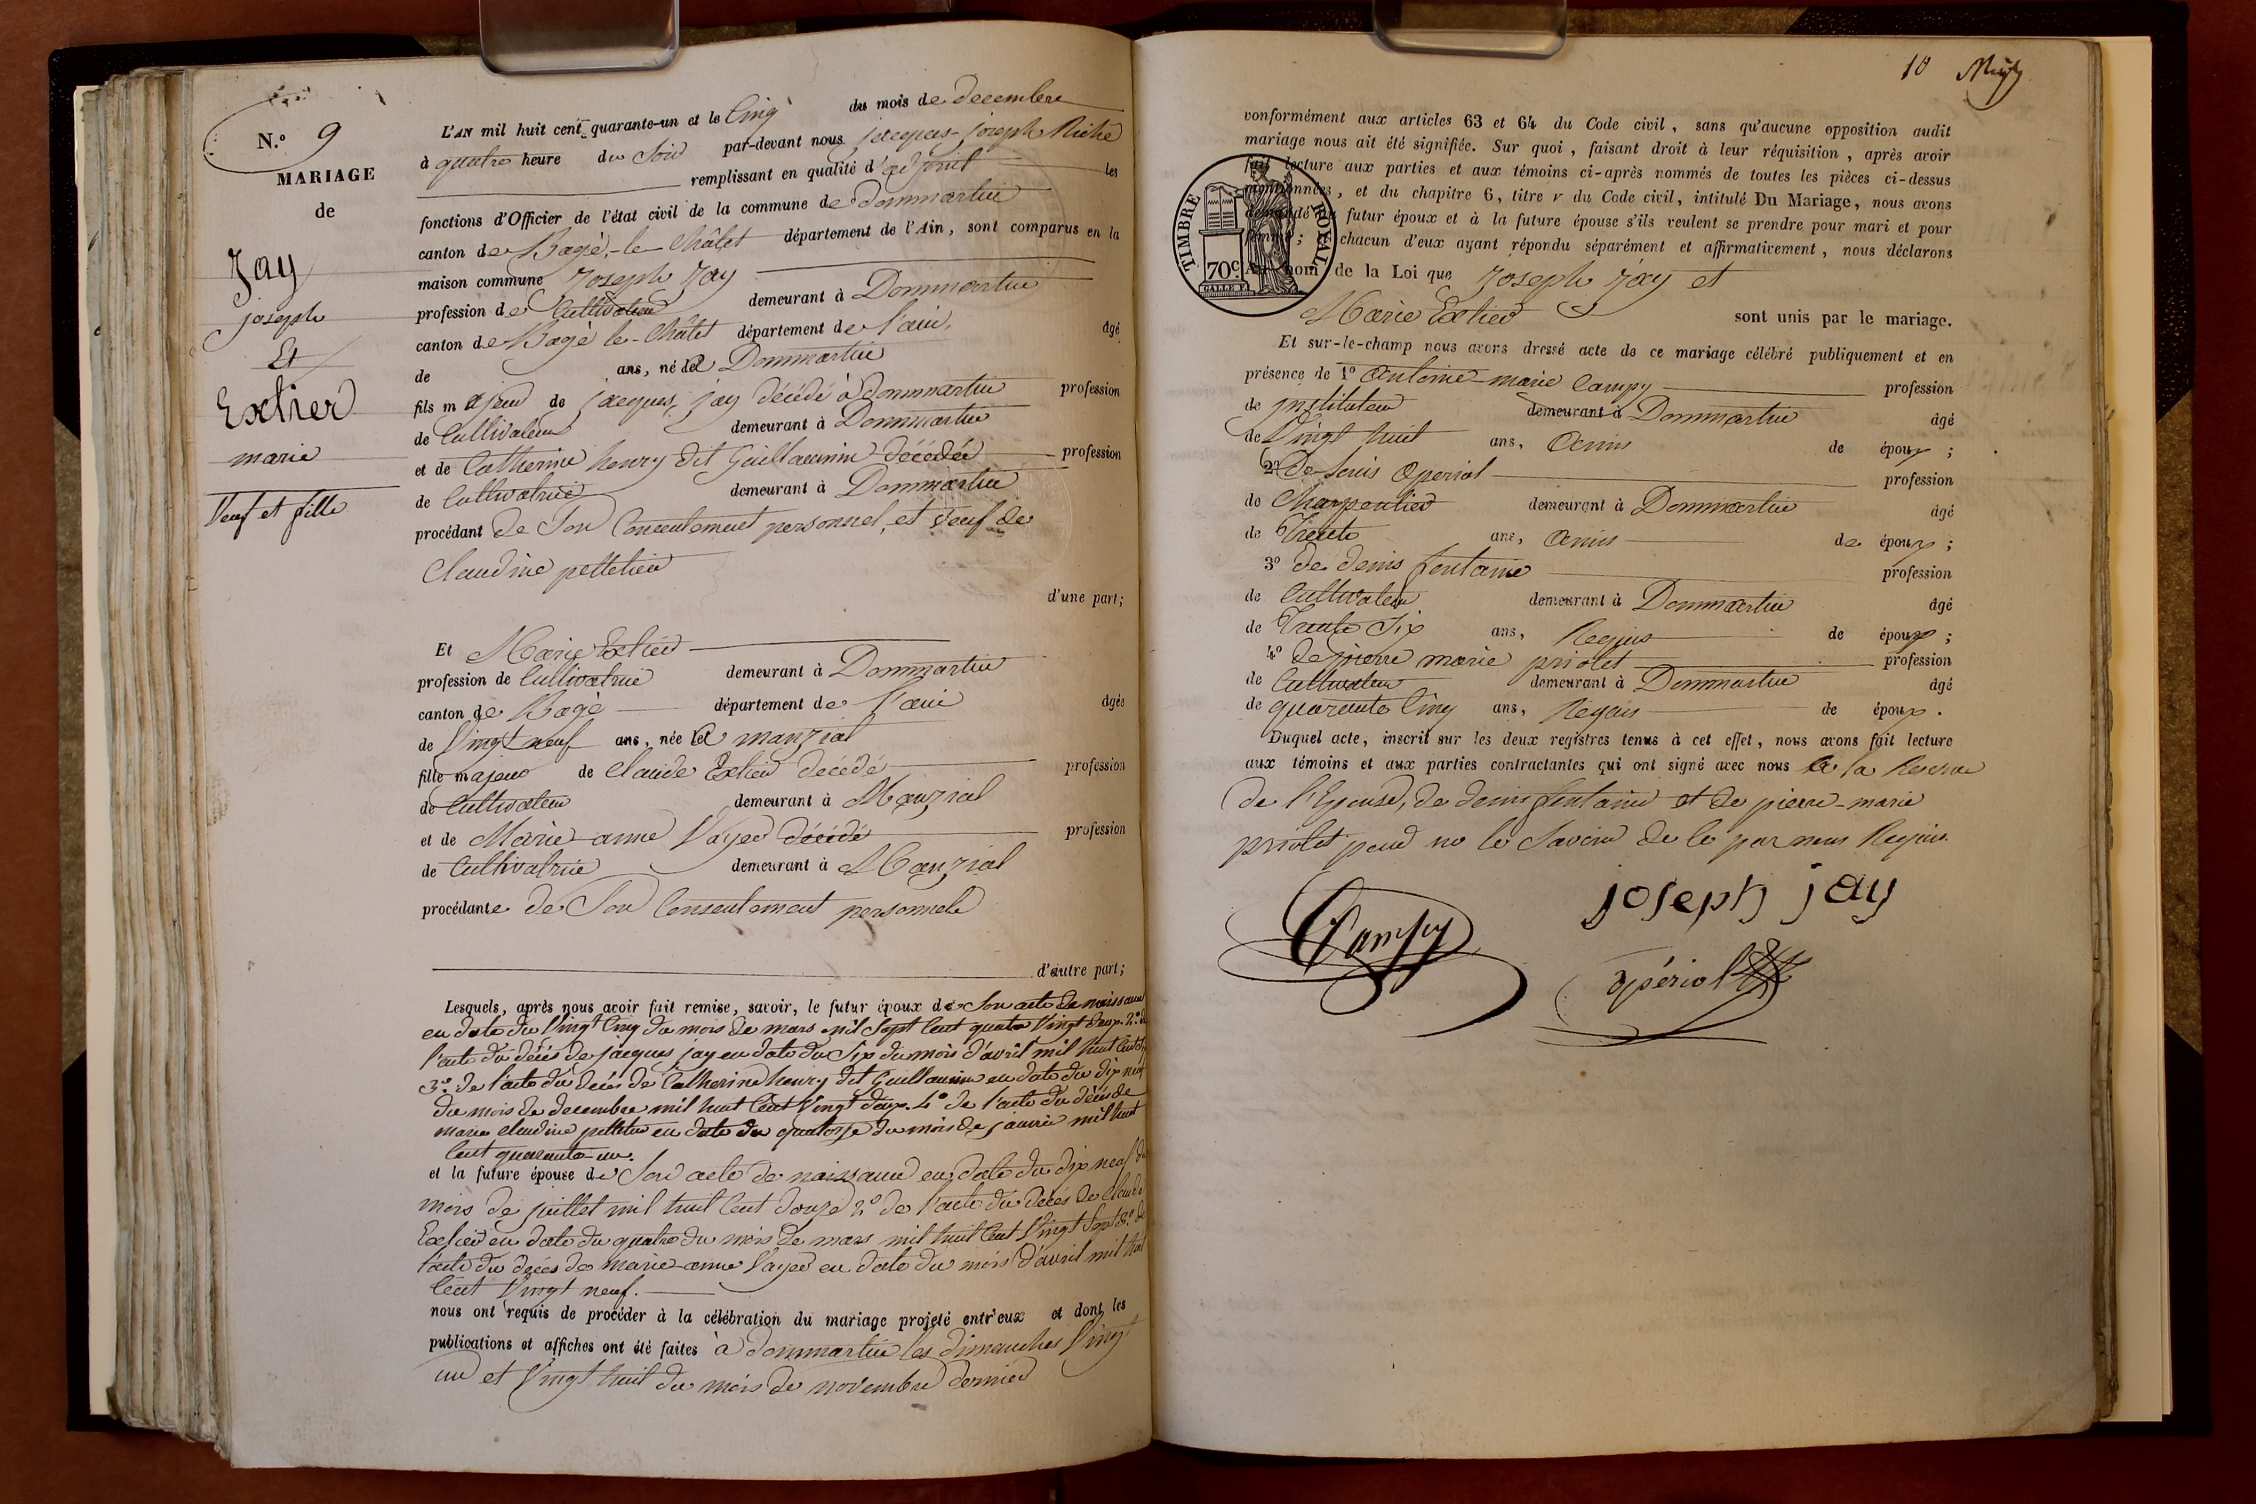 N.º 9
MARIAGE
de
Jay
joseph
Et
Extier
marie
Veuf et fille
L'AN mil huit cent quarante-un et le Cinq du mois de decembre
à quatre heure du Soir par-devant nous jacques-joseph Miché
remplissant en qualité d'adjoint les
fonctions d'Officier de l'état civil de la commune de Dommartin
canton de Bagé-le-Châtel département de l'Ain, sont comparus en la
maison commune Joseph Jay
profession de Cultivateur demeurant à Dommartin
canton de Bagé le-Châtel département de l'ain, âgé
de ans, né à Dommartin
fils majeur de jacques jay décédé à Dommartin profession
de Cultivateur demeurant à Dommartin
et de Catherine henry dit Guillaumin décédée profession
de Cultivatrice demeurant à Dommartin
procédant de Son Consentement personnel, et veuf de
Claudine pelletier
d'une part;
Et Marie Extier
profession de Cultivatrice demeurant à Dommartin
canton de Bagé département de l'ain âgée
de Vingt neuf ans, née à manziat
fille majeure de Claude Extier décédé profession
de Cultivateur demeurant à Manziat
et de Marie-anne Vayer décédé profession
de Cultivatrice demeurant à Manziat
procédante de Son Consentement personnel
d'autre part;
Lesquels, après nous avoir fait remise, savoir, le futur époux de Son acte de naissance
en date du Vingt Cinq du mois de mars mil Sept Cent quatre Vingt deux. 2º de
l'acte du décès de jacques jay en date du Six du mois d'avril mil huit Cent
3º de l'acte du décès de Catherine henry dit Guillaumin en date du dix neuf
du mois de decembre mil huit Cent Vingt deux. 4º de l'acte du décès de
marie claudine pelletier en date du quatorze du mois de janvier mil huit
Cent quarante-un.
et la future épouse de Son acte de naissance en date du dix neuf du
mois de juillet mil huit Cent douze 2º de l'acte du décès de Claude
Extier en date du quatre du mois de mars mil huit Cent Vingt Sept 3º de
l'acte du décès de marie-anne Vayer en date du mois d'avril mil huit
Cent Vingt neuf.
nous ont requis de procéder à la célébration du mariage projeté entr'eux et dont les
publications et affiches ont été faites à Dommartin les dimanches Vingt
un et Vingt huit du mois de novembre dernier
10
conformément aux articles 63 et 64 du Code civil, sans qu'aucune opposition audit
mariage nous ait été signifiée. Sur quoi, faisant droit à leur réquisition, après avoir
fait lecture aux parties et aux témoins ci-après nommés de toutes les pièces ci-dessus
mentionnées, et du chapitre 6, titre v du Code civil, intitulé Du Mariage, nous avons
demandé au futur époux et à la future épouse s'ils veulent se prendre pour mari et pour
femme; chacun d'eux ayant répondu séparément et affirmativement, nous déclarons
Au nom de la Loi que Joseph Jay et
Marie Extier sont unis par le mariage.
TIMBRE ROYAL
70c
Et sur-le-champ nous avons dressé acte de ce mariage célébré publiquement et en
présence de 1º Antoine-marie Campy profession
de jnstituteur demeurant à Dommartin âgé
de Vingt huit ans, amis de époux;
2º De Louis Opériol profession
de Charpentier demeurant à Dommartin âgé
de Trente ans, amis de époux;
3º de denis fontaine profession
de Cultivateur demeurant à Dommartin âgé
de Trente Six ans, Requis de époux;
4º de pierre marie priolet profession
de Cultivateur demeurant à Dommartin âgé
de quarante Cinq ans, Requis de époux.
Duquel acte, inscrit sur les deux registres tenus à cet effet, nous avons fait lecture
aux témoins et aux parties contractantes qui ont signé avec nous à la Reserve
de l'Epouse, de denis fontaine et de pierre-marie
priolet pour ne le Savoir de ce par nous Requis.
Campy
joseph jay
opériol